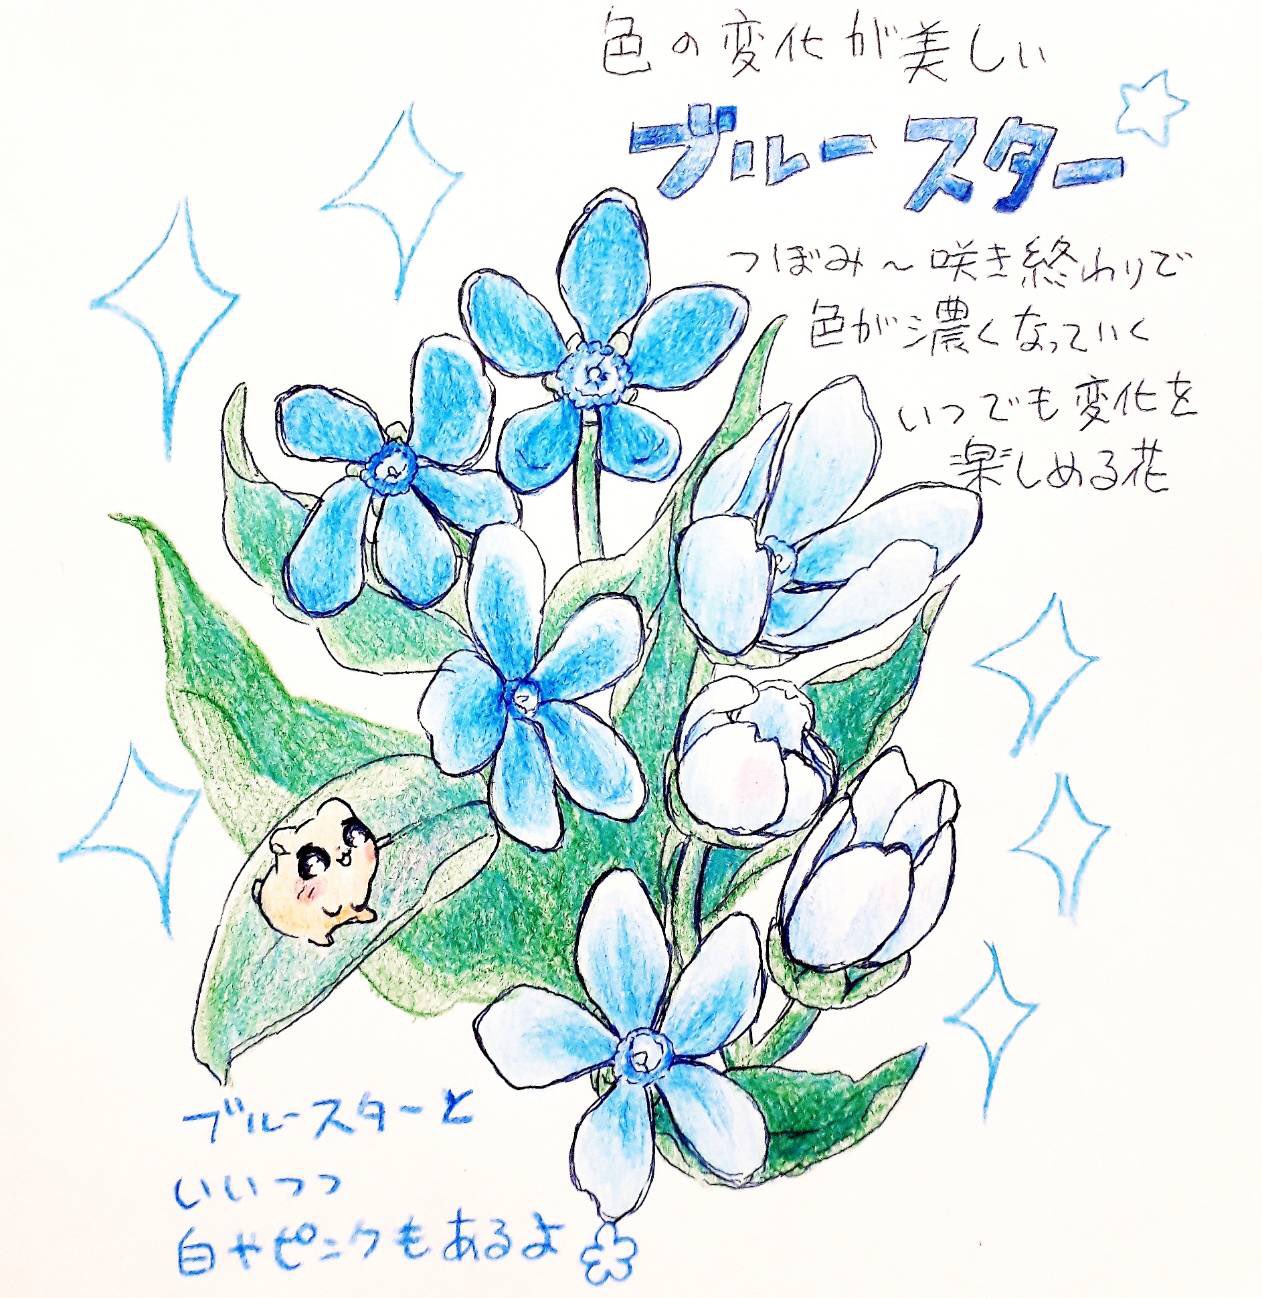 色の変化が美しい
ブルースター
つぼみ～咲き終わりで
色が濃くなっていく
いつでも変化を
楽しめる花
ブルースターと
いいつつ
白やピンクもあるよ